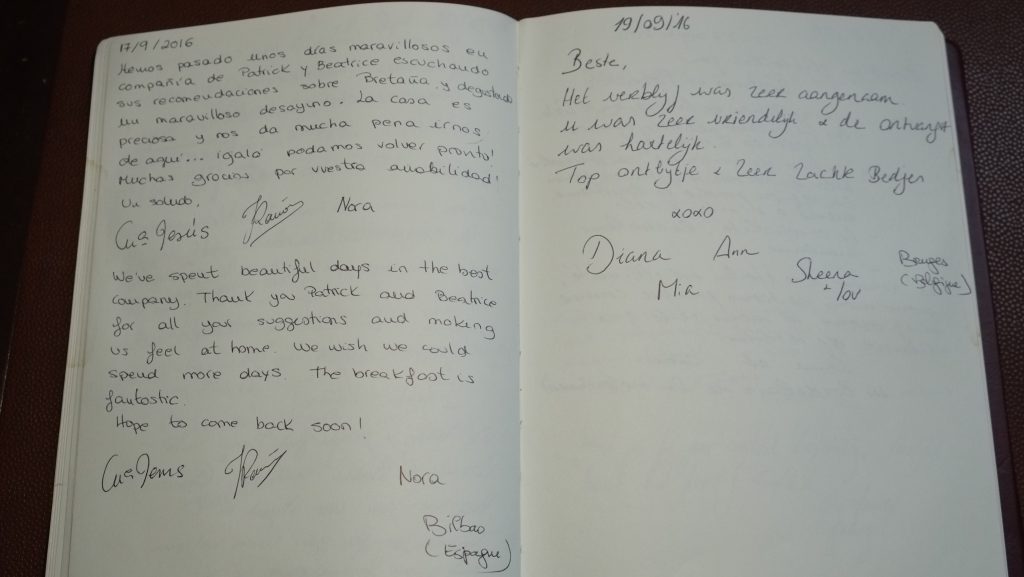 17/9/2016
Hemos pasado unos días maravillosos en
compañía de Patrick y Beatrice escuchando
sus recomendaciones sobre Bretaña y degustando
un maravilloso desayuno. La casa es
preciosa y nos da mucha pena irnos
de aquí... ¡galá podamos volver pronto!
Muchas gracias por vuestra amabilidad!
Un saludo,
Mª Jesús Ramón Nora
We've spent beautiful days in the best
company. Thank you Patrick and Beatrice
for all your suggestions and making
us feel at home. We wish we could
spend more days. The breakfast is
fantastic.
Hope to come back soon!
Mª Jesús Ramón Nora
Bilbao
(Espagne)
19/09/16
Beste,
Het verblyf was zeer aangenaam
u was zeer vriendelyk & de ontvangst
was hartelyk.
Top ontbytje & zeer zachte Bedjes
xoxo
Diana Ann
Mia Sheena
+ lov
Bruges
(Belgique)